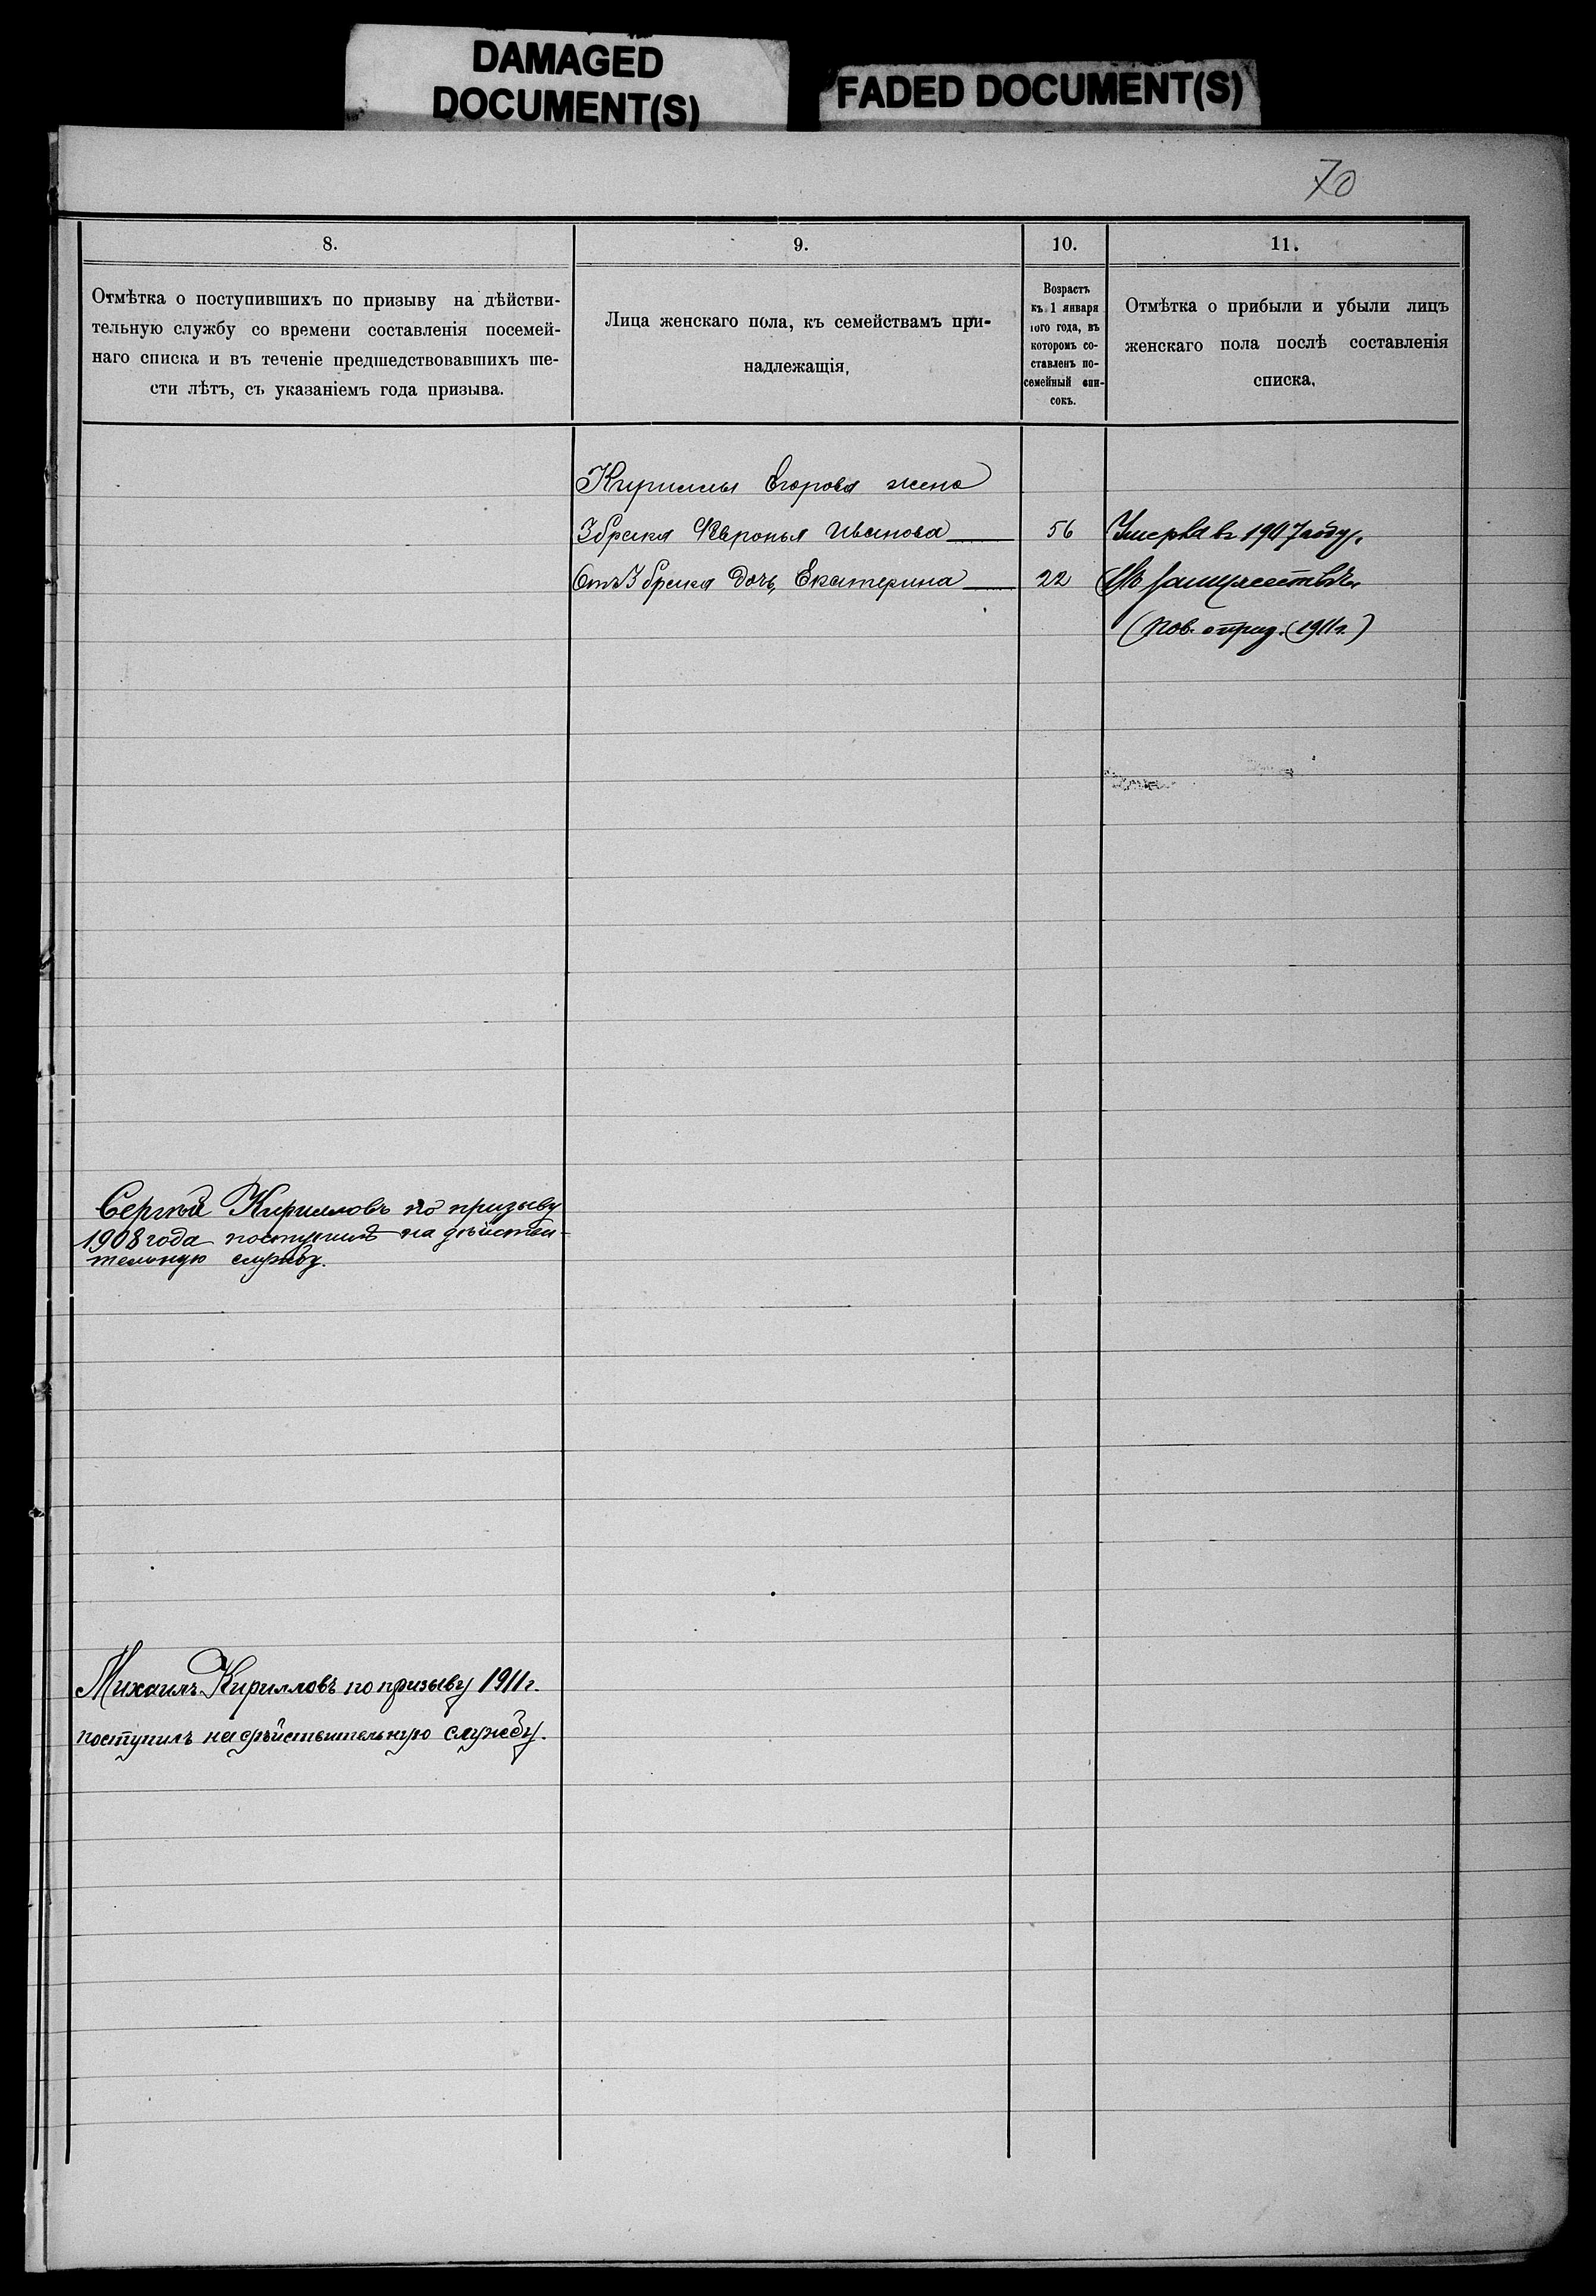 DAMAGED
DOCUMENT(S)
FADED DOCUMENT(S)
70
8.
9.
10.
11.
Отмѣтка о поступившихъ по призыву на дѣйстви-
тельную службу со времени составленія посемей-
наго списка и въ теченіе предшедствовавшихъ ше-
сти лѣтъ, съ указаніемъ года призыва.
Лица женскаго пола, къ семействамъ при-
надлежащія,
Возрастъ
къ 1 января
того года, въ
которомъ со-
ставленъ по-
семейный спи-
сокъ.
Отмѣтка о прибыли и убыли лицъ
женскаго пола послѣ составленія
списка,
Кириллы Егорова жена
3 брака Февронья Иванова 56 Умерла въ 1907 году.
Отъ 3 брака дочь Екатерина 22 Въ замужествѣ.
(Пов. 1911 г.)
Сергѣй Кирилловъ по призыву
1908 года поступилъ на дѣйстви-
тельную службу.
Михаилъ Кирилловъ по призыву 1911 г.
поступилъ на дѣйствительную службу.